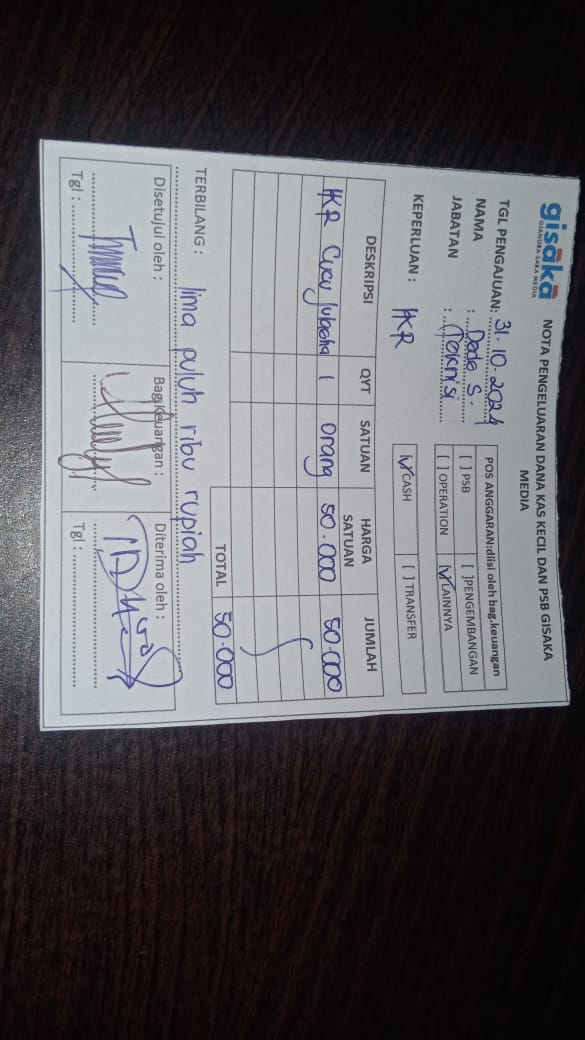 gisaka
GIANDRA SAKA MEDIA
NOTA PENGELUARAN DANA KAS KECIL DAN PSB GISAKA
MEDIA
TGL PENGAJUAN: 31-10-2024
NAMA : Dede S-
JABATAN : Teknisi
POS ANGGARAN:diisi oleh bag.keuangan
[ ] PSB [ ]PENGEMBANGAN
[ ] OPERATION [V] LAINNYA
KEPERLUAN : HKR
[V] CASH [ ] TRANSFER
DESKRIPSI QYT SATUAN HARGA SATUAN JUMLAH
HKR Cucu 1 orang 50.000 50.000
TOTAL 50.000
TERBILANG : lima puluh ribu rupiah
Disetujui oleh : Bag.Keuangan : Diterima oleh :
Tgl : Tgl :